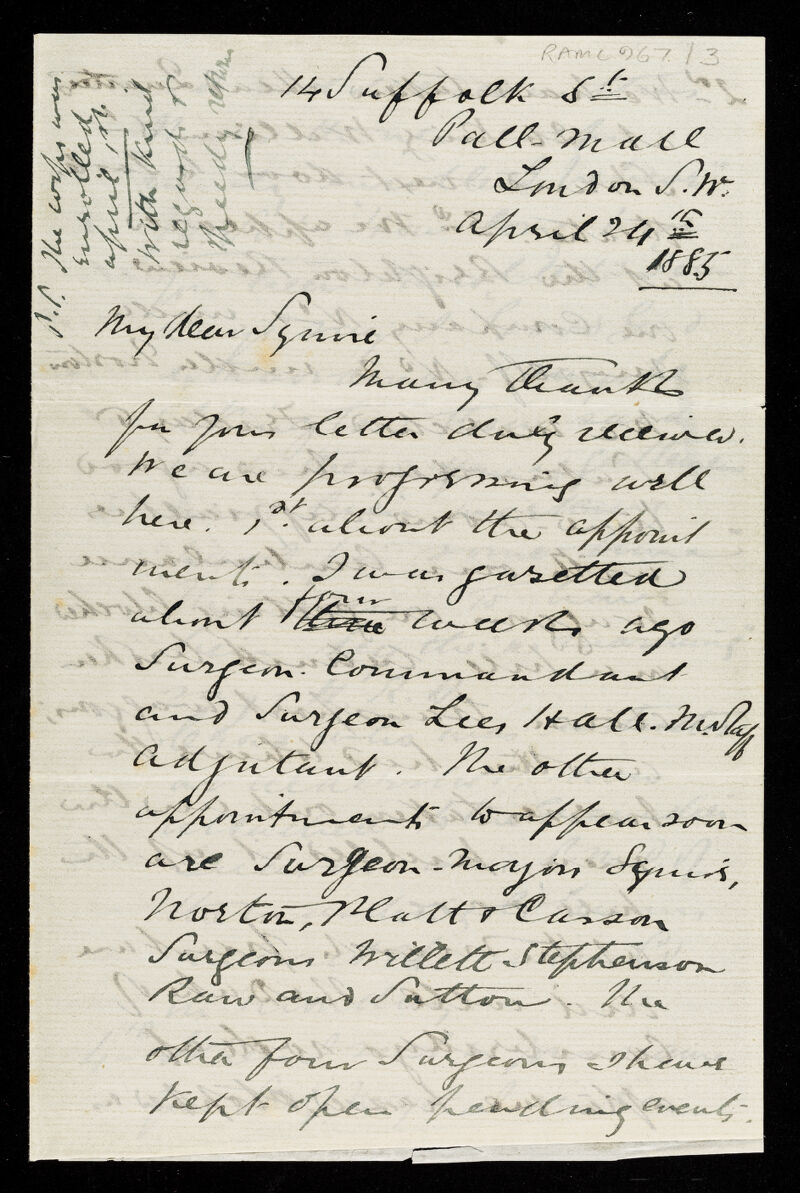 RAMC 967/3
14 Suffolk St
Pall-Mall
London S.W.
April 24th
1885
My dear Squire
Many thanks
for your letter duly received.
We are progressing well
here. 1st about the appoint
ments. I was gazetted
about three four weeks ago
Surgeon-Commandant
and Surgeon Lees Hall. M. Staff
Adjutant. The other
appointments to appear soon
are Surgeon-Majors Squire,
Norton, Platt & Casson
Surgeons Willett Stephenson
Raw and Sutton. The
other four Surgeons I have
kept open pending events.
P.S. The corps was
enrolled
April 1st.
With kind
regards &
speedy return